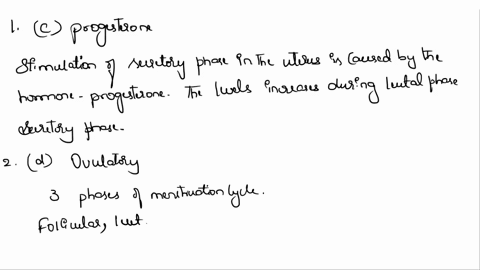 1. (c) progesterone
Stimulation of secretory phase in the uterus is caused by the
hormone - progesterone. The levels increases during luetal phase
secretory phase.
2. (d) Ovulatory
3 phases of menstruation cycle.
Folicular, leut